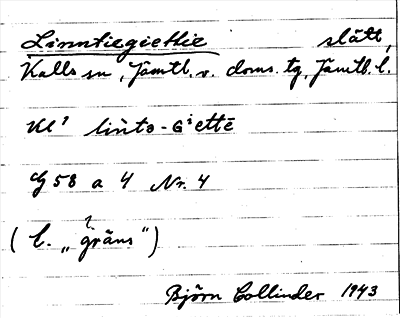 Linntiegiettie slått,
Kalls sn, Jämtl. v. doms. tg, Jämtl. l.
linto - Giettē
G 58 a 4 Nr. 4
(l. „gräns“)
?
Björn Collinder 1943